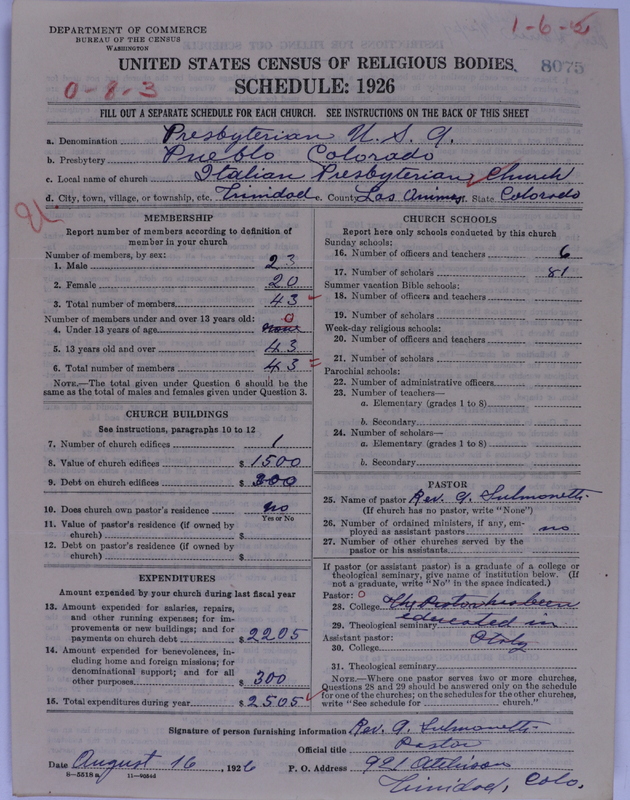 DEPARTMENT OF COMMERCE
BUREAU OF THE CENSUS
WASHINGTON
1-6-2
8075
0-8-3
UNITED STATES CENSUS OF RELIGIOUS BODIES
SCHEDULE: 1926
FILL OUT A SEPARATE SCHEDULE FOR EACH CHURCH. SEE INSTRUCTIONS ON THE BACK OF THIS SHEET
a. Denomination Presbyterian U. S. A.
b. Presbytery Pueblo Colorado
c. Local name of church Italian Presbyterian Church
d. City, town, village, or township, etc. Trinidad e. County Las Animas f. State Colorado
MEMBERSHIP
Report number of members according to definition of
member in your church
Number of members, by sex:
1. Male 23
2. Female 20
3. Total number of members 43
Number of members under and over 13 years old: 0
4. Under 13 years of age none
5. 13 years old and over 43
6. Total number of members 43
NOTE.—The total given under Question 6 should be the
same as the total of males and females given under Question 3.
CHURCH BUILDINGS
See instructions, paragraphs 10 to 12
7. Number of church edifices 1
8. Value of church edifices $ 1500
9. Debt on church edifices $ 300
10. Does church own pastor's residence no
Yes or No
11. Value of pastor's residence (if owned by
church) $
12. Debt on pastor's residence (if owned by
church) $
EXPENDITURES
Amount expended by your church during last fiscal year
13. Amount expended for salaries, repairs,
and other running expenses; for im-
provements or new buildings; and for
payments on church debt $ 2205
14. Amount expended for benevolences, in-
cluding home and foreign missions; for
denominational support; and for all
other purposes $ 300
15. Total expenditures during year $ 2505
CHURCH SCHOOLS
Report here only schools conducted by this church
Sunday schools:
16. Number of officers and teachers 6
17. Number of scholars 81
Summer vacation Bible schools:
18. Number of officers and teachers
19. Number of scholars
Week-day religious schools:
20. Number of officers and teachers
21. Number of scholars
Parochial schools:
22. Number of administrative officers
23. Number of teachers—
a. Elementary (grades 1 to 8)
b. Secondary
24. Number of scholars—
a. Elementary (grades 1 to 8)
b. Secondary
PASTOR
25. Name of pastor Rev. A. Sulmonetti
(If church has no pastor, write "None")
26. Number of ordained ministers, if any, em-
ployed as assistant pastors no
27. Number of other churches served by the
pastor or his assistants
If pastor (or assistant pastor) is a graduate of a college or
theological seminary, give name of institution below. (If
not a graduate, write "No" in the space indicated.)
Pastor: 0
28. College The Pastor has been
29. Theological seminary educated in
Assistant pastor: Italy
30. College
31. Theological seminary
NOTE.—Where one pastor serves two or more churches,
Questions 28 and 29 should be answered only on the schedule
for one of the churches; on the schedules for the other churches,
write "See schedule for church."
Signature of person furnishing information Rev. A. Sulmonetti
Official title Pastor
Date August 16, 1926 P. O. Address 921 Atchison
8—5518 a 11—90546 Trinidad, Colo.